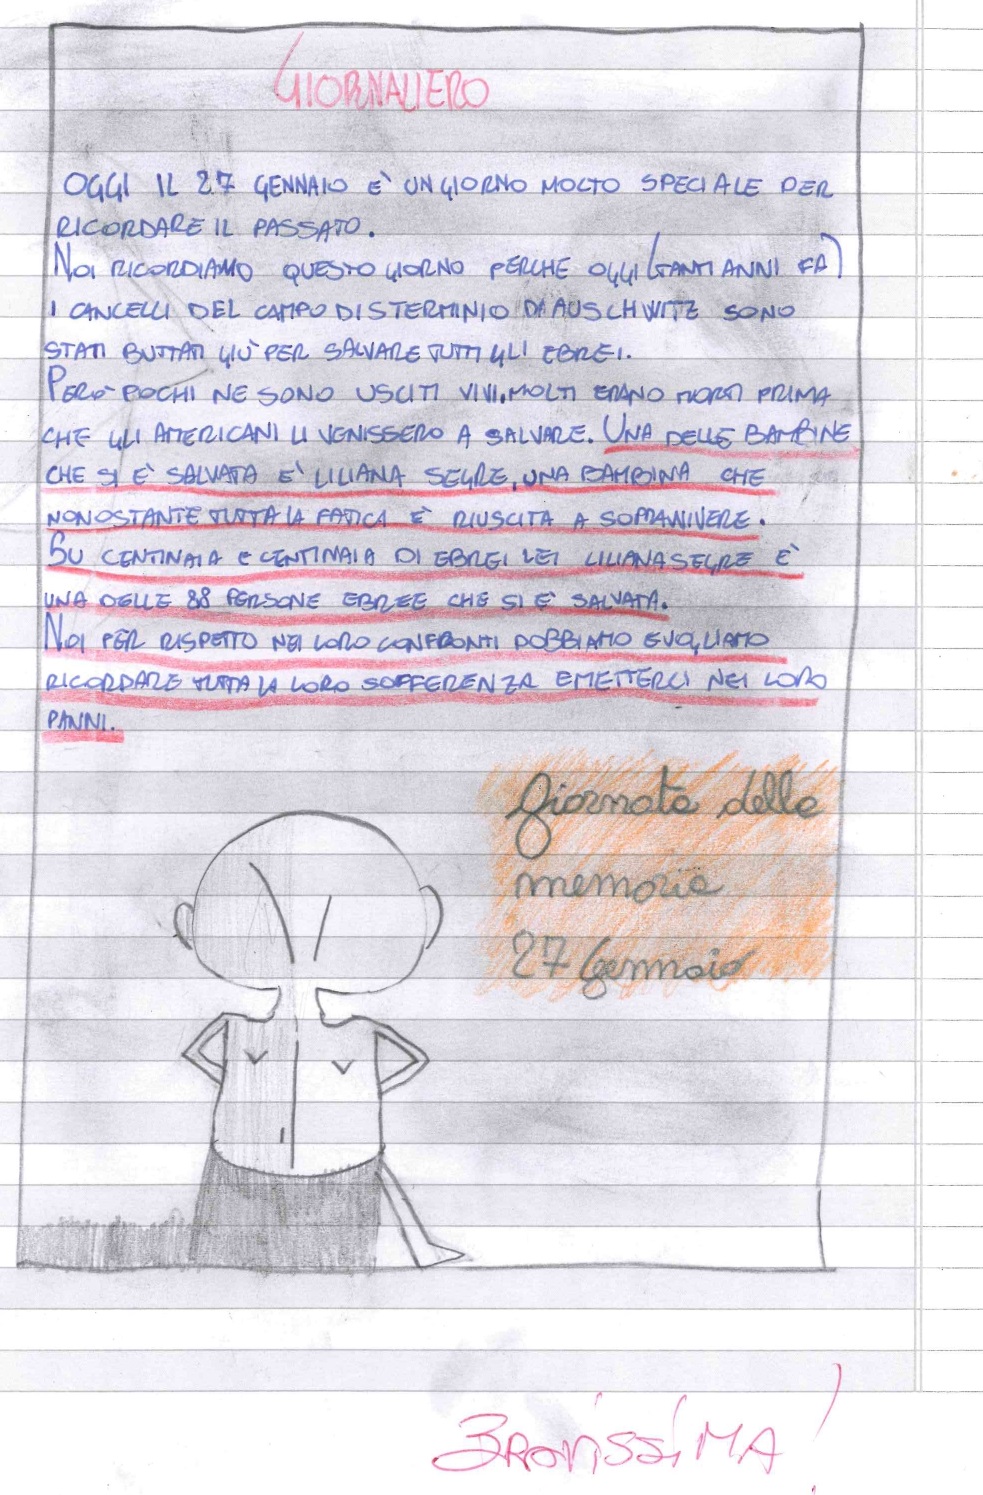 GIORNALIERO
OGGI IL 27 GENNAIO È UN GIORNO MOLTO SPECIALE PER
RICORDARE IL PASSATO.
NOI RICORDIAMO QUESTO GIORNO PERCHE OGGI (TANTI ANNI FA)
I CANCELLI DEL CAMPO DI STERMINIO DI AUSCHWITZ SONO
STATI BUTTATI GIÙ PER SALVARE TUTTI GLI EBREI.
PERÒ POCHI NE SONO USCITI VIVI. MOLTI ERANO MORTI PRIMA
CHE GLI AMERICANI LI VENISSERO A SALVARE. UNA DELLE BAMBINE
CHE SI È SALVATA È LILIANA SEGRE, UNA BAMBINA CHE
NONOSTANTE TUTTA LA FATICA È RIUSCITA A SOPRAVVIVERE.
SU CENTINAIA E CENTINAIA DI EBREI LEI LILIANA SEGRE È
UNA DELLE 88 PERSONE EBREE CHE SI È SALVATA.
NOI PER RISPETTO NEI LORO CONFRONTI DOBBIAMO E VOGLIAMO
RICORDARE TUTTA LA LORO SOFFERENZA E METTERCI NEI LORO
PANNI.
Giornata della
memoria
27 Gennaio
BRAVISSIMA!